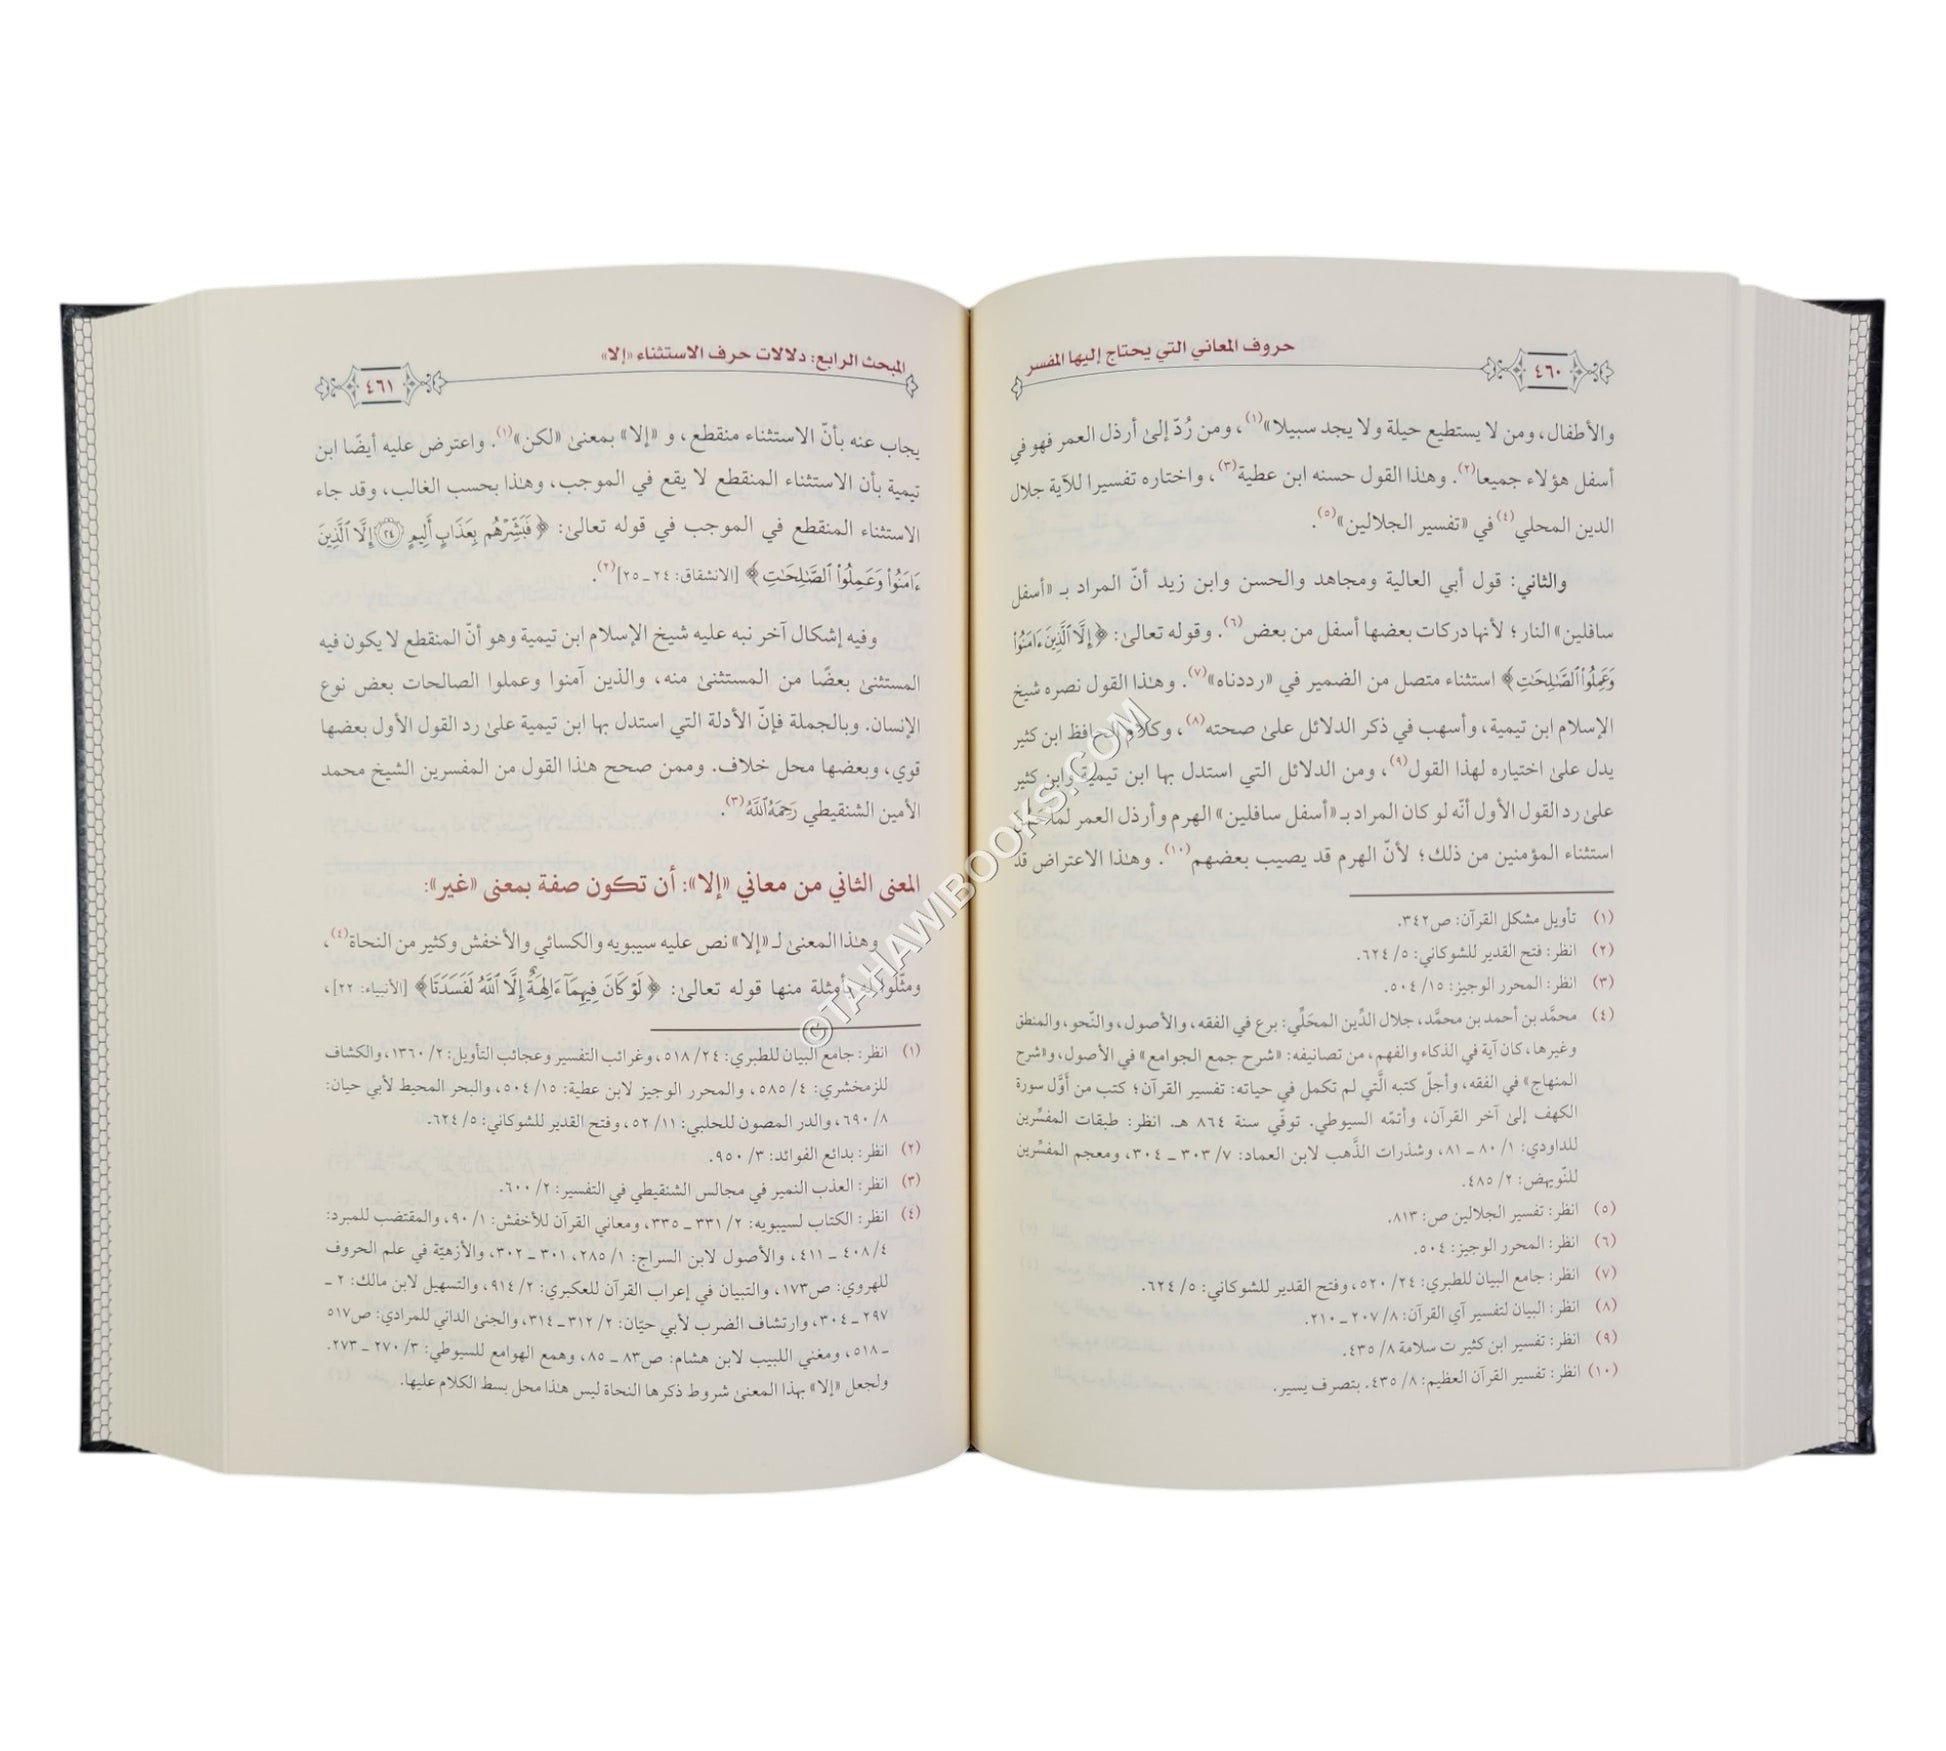 حروف المعاني التي يحتاج إليها المفسر
٤٦٠
والأطفال، ومن لا يستطيع حيلة ولا يجد سبيلا»(١)، ومن رُدّ إلىٰ أرذل العمر فهو في
أسفل هؤلاء جميعا(٢). وهـٰذا القول حسنه ابن عطية(٣)، واختاره تفسيرا للآية جلال
الدين المحلي(٤) في «تفسير الجلالين»(٥).
والثاني: قول أبي العالية ومجاهد والحسن وابن زيد أنّ المراد بـ «أسفل
سافلين» النار؛ لأنها دركات بعضها أسفل من بعض(٦). وقوله تعالىٰ: ﴿إِلَّا ٱلَّذِينَ ءَامَنُواْ
وَعَمِلُواْ ٱلصَّـٰلِحَـٰتِ﴾ استثناء متصل من الضمير في «رددناه»(٧). وهـٰذا القول نصره شيخ
الإسلام ابن تيمية، وأسهب في ذكر الدلائل علىٰ صحته(٨)، وكلام الحافظ ابن كثير
يدل علىٰ اختياره لهذا القول(٩)، ومن الدلائل التي استدل بها ابن تيمية وابن كثير
علىٰ رد القول الأول أنّه لو كان المراد بـ «أسفل سافلين» الهرم وأرذل العمر لما حسن
استثناء المؤمنين من ذلك؛ لأنّ الهرم قد يصيب بعضهم(١٠). وهـٰذا الاعتراض قد
(١) تأويل مشكل القرآن: ص٣٤٢.
(٢) انظر: فتح القدير للشوكاني: ٥/ ٦٢٤.
(٣) انظر: المحرر الوجيز: ١٥/ ٥٠٤.
(٤) محمَّد بن أحمد بن محمَّد، جلال الدِّين المحَلِّي: برع في الفقه، والأصول، والنّحو، والمنطق
وغيرها، كان آية في الذكاء والفهم، من تصانيفه: «شرح جمع الجوامع» في الأصول، و«شرح
المنهاج» في الفقه، وأجلّ كتبه الَّتي لم تكمل في حياته: تفسير القرآن؛ كتب من أوَّل سورة
الكهف إلىٰ آخر القرآن، وأتمّه السيوطي. توفّي سنة ٨٦٤ هـ. انظر: طبقات المفسِّرين
للداودي: ١/ ٨٠ ـ ٨١، وشذرات الذَّهب لابن العماد: ٧/ ٣٠٣ ـ ٣٠٤، ومعجم المفسِّرين
للنّويهض: ٢/ ٤٨٥.
(٥) انظر: تفسير الجلالين ص: ٨١٣.
(٦) انظر: المحرر الوجيز: ٥٠٤.
(٧) انظر: جامع البيان للطبري: ٢٤/ ٥٢٠، وفتح القدير للشوكاني: ٥/ ٦٢٤.
(٨) انظر: البيان لتفسير آي القرآن: ٨/ ٢٠٧ ـ ٢١٠.
(٩) انظر: تفسير ابن كثير ت سلامة ٨/ ٤٣٥.
(١٠) انظر: تفسير القرآن العظيم: ٨/ ٤٣٥. بتصرف يسير.
المبحث الرابع: دلالات حرف الاستثناء «إلا»
٤٦١
يجاب عنه بأنّ الاستثناء منقطع، و «إلا» بمعنىٰ «لكن»(١). واعترض عليه أيضًا ابن
تيمية بأن الاستثناء المنقطع لا يقع في الموجب، وهـٰذا بحسب الغالب، وقد جاء
الاستثناء المنقطع في الموجب في قوله تعالىٰ: ﴿فَبَشِّرْهُم بِعَذَابٍ أَلِيمٍ ٢٤ إِلَّا ٱلَّذِينَ
ءَامَنُواْ وَعَمِلُواْ ٱلصَّـٰلِحَـٰتِ﴾ [الانشقاق: ٢٤ ـ ٢٥](٢).
وفيه إشكال آخر نبه عليه شيخ الإسلام ابن تيمية وهو أنّ المنقطع لا يكون فيه
المستثنىٰ بعضًا من المستثنىٰ منه، والذين آمنوا وعملوا الصالحات بعض نوع
الإنسان. وبالجملة فإنّ الأدلة التي استدل بها ابن تيمية علىٰ رد القول الأول بعضها
قوي، وبعضها محل خلاف. وممن صحح هـٰذا القول من المفسرين الشيخ محمد
الأمين الشنقيطي رَحِمَهُ ٱللَّهُ(٣).
المعنى الثاني من معاني «إلا»: أن تكون صفة بمعنى «غير»:
وهـٰذا المعنىٰ لـ «إلا» نص عليه سيبويه والكسائي والأخفش وكثير من النحاة(٤)،
ومثّلوا له بأمثلة منها قوله تعالىٰ: ﴿لَوْ كَانَ فِيهِمَآ ءَالِهَةٌ إِلَّا ٱللَّهُ لَفَسَدَتَا﴾ [الأنبياء: ٢٢]،
(١) انظر: جامع البيان للطبري: ٢٤/ ٥١٨، وغرائب التفسير وعجائب التأويل: ٢/ ١٣٦٠، والكشاف
للزمخشري: ٤/ ٥٨٥، والمحرر الوجيز لابن عطية: ١٥/ ٥٠٤، والبحر المحيط لأبي حيان:
٨/ ٦٩٠، والدر المصون للحلبي: ١١/ ٥٢، وفتح القدير للشوكاني: ٥/ ٦٢٤.
(٢) انظر: بدائع الفوائد: ٣/ ٩٥٠.
(٣) انظر: العذب النمير في مجالس الشنقيطي في التفسير: ٢/ ٦٠٠.
(٤) انظر: الكتاب لسيبويه: ٢/ ٣٣١ ـ ٣٣٥، ومعاني القرآن للأخفش: ١/ ٩٠، والمقتضب للمبرد:
٤/ ٤٠٨ ـ ٤١١، والأصول لابن السراج: ١/ ٢٨٥، ٣٠١ ـ ٣٠٢، والأزهيّة في علم الحروف
للهروي: ص١٧٣، والتبيان في إعراب القرآن للعكبري: ٢/ ٩١٤، والتسهيل لابن مالك: ٢ ـ
٢٩٧ ـ ٣٠٤، وارتشاف الضرب لأبي حيّان: ٢/ ٣١٢ ـ ٣١٤، والجنىٰ الداني للمرادي: ص٥١٧
ـ ٥١٨، ومغني اللبيب لابن هشام: ص٨٣ ـ ٨٥، وهمع الهوامع للسيوطي: ٣/ ٢٧٠ ـ ٢٧٣.
ولجعل «إلا» بهذا المعنىٰ شروط ذكرها النحاة ليس هـٰذا محل بسط الكلام عليها.
©TAHAWIBOOKS.COM